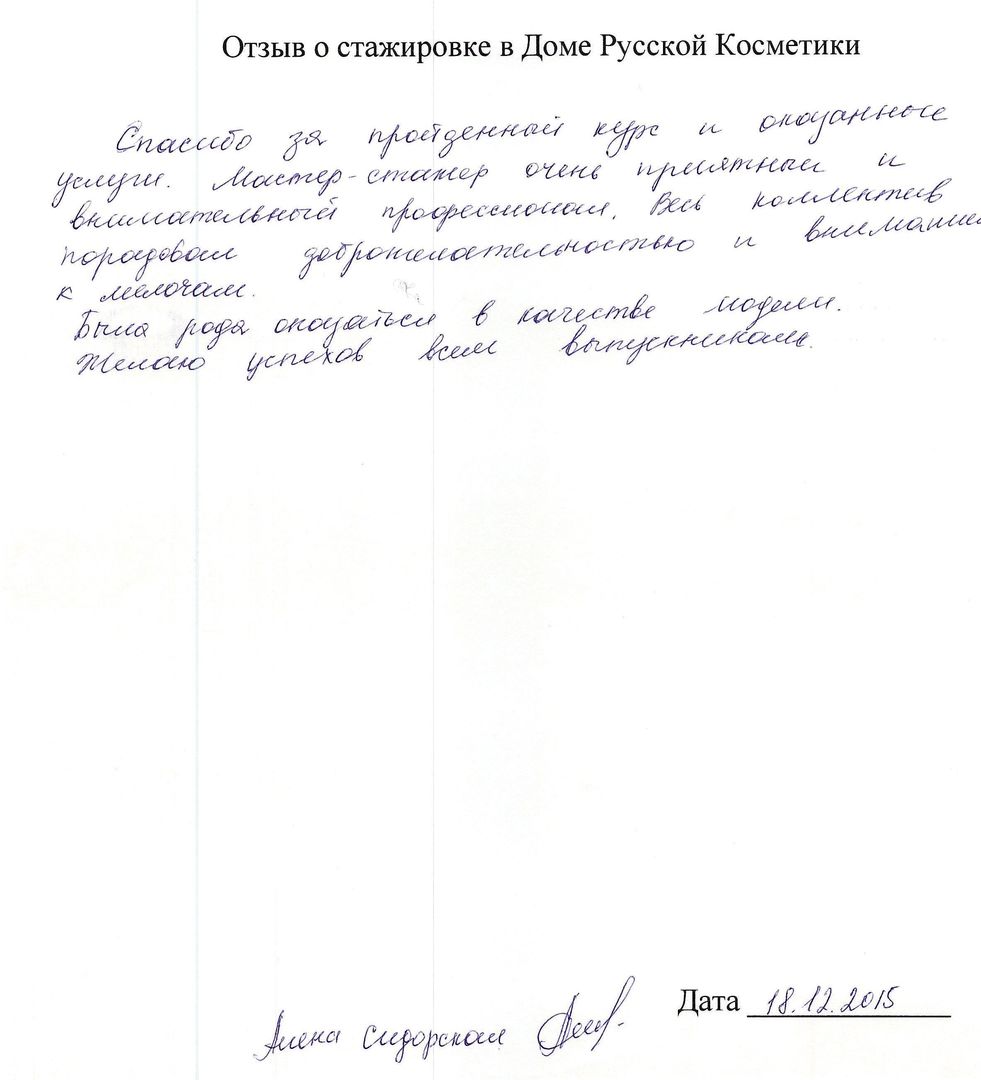 Отзыв о стажировке в Доме Русской Косметики
Спасибо за пройденный курс и оказанные
услуги. Мастер-стажер очень приятный и
внимательный профессионал. Весь коллектив
порадовал доброжелательностью и внимание
к мелочам.
Была рада оказаться в качестве модели.
Желаю успехов всем выпускникам.
Дата 18.12.2015
Алена Сидорская